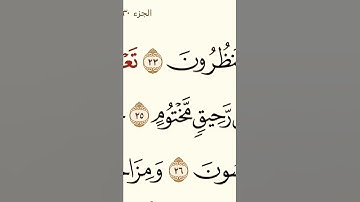 الجزء ٣٠
نظُرُونَ ٢٣ تَع
رَّحِيقٍ مَّخْتُومٍ ٢٥
سُونَ ٢٦ وَمِزَا